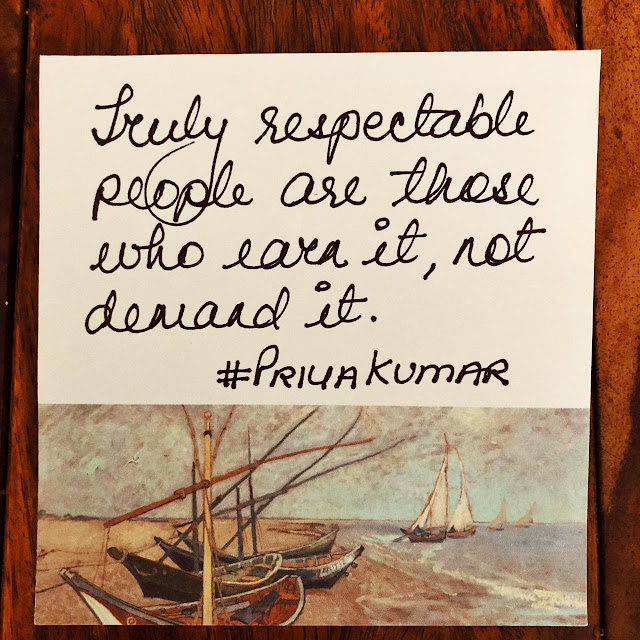 Truly respectable
people are those
who earn it, not
demand it.
#PRIYAKUMAR